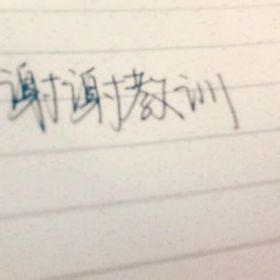 谢谢教训